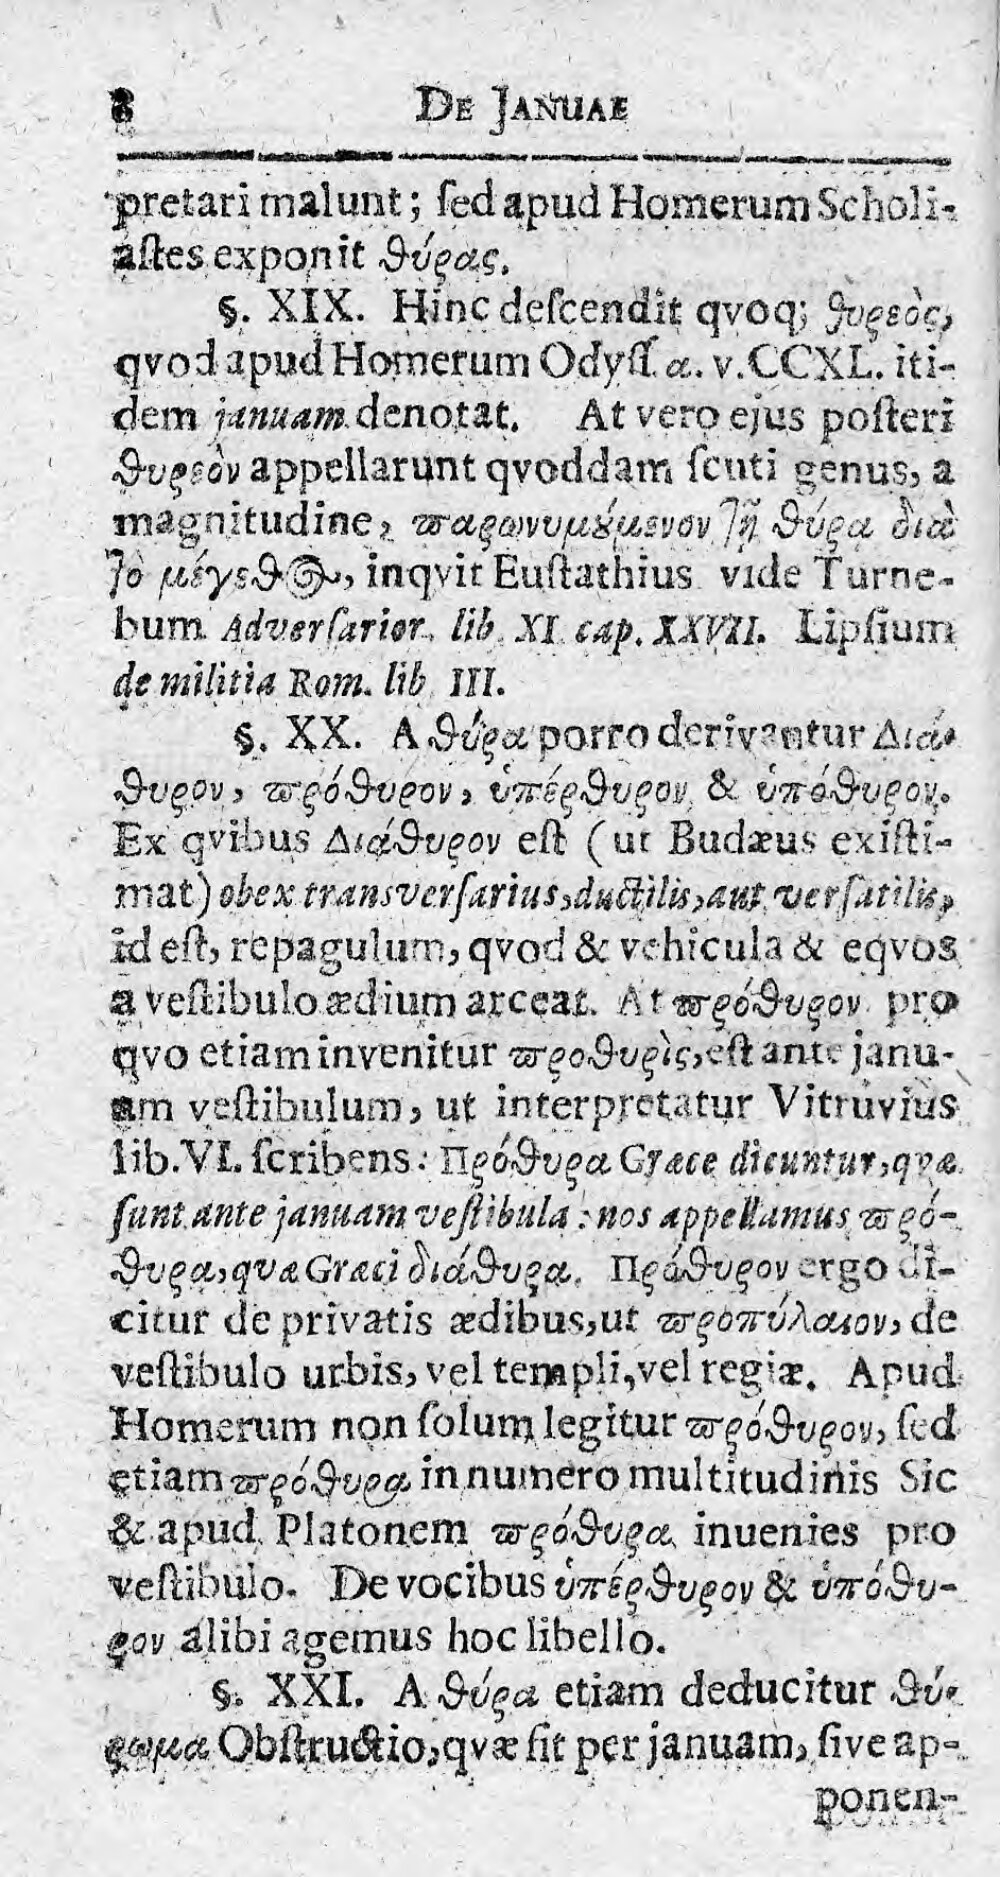 8 DE JANUAE
pretari malunt; ſed apud Homerum Scholi-
aſtes exponit ϑύρας.
§. XIX. Hinc deſcendit qvoq; ϑυρεὸς,
qvod apud Homerum Odyſſ. α. v. CCXL. iti-
dem januam denotat. At vero ejus poſteri
ϑυρεὸν appellarunt qvoddam ſcuti genus, a
magnitudine, ϖαρωνυμȣ́μενον τῇ ϑύρα διὰ
τὸ μέγεϑος, inqvit Euſtathius vide Turne-
bum Adverſarior. lib. XI cap. XXVII. Lipſium
de militia Rom. lib III.
§. XX. A ϑύρα porro derivantur Διά-
ϑυρον, ϖρόϑυρον, ὑπέρϑυρον & ὑπόϑυρον.
Ex qvibus Διάϑυρον eſt (ut Budæus exiſti-
mat) obex transverſarius, ductilis, aut verſatilis,
id eſt, repagulum, qvod & vehicula & eqvos
a veſtibulo ædium arceat. At ϖρόϑυρον pro
qvo etiam invenitur ϖροϑυρὶς, eſt ante janu-
am veſtibulum, ut interpretatur Vitruvius
lib. VI. ſcribens: Πρόϑυρα Græce dicuntur, qvæ
ſunt ante januam veſtibula: nos appellamus ϖρό-
ϑυρα, qvæ Græci διάϑυρα. Πρόϑυρον ergo di-
citur de privatis ædibus, ut ϖροπύλαιον, de
veſtibulo urbis, vel templi, vel regiæ. Apud
Homerum non ſolum legitur ϖρόϑυρον, ſed
etiam ϖρόϑυρα in numero multitudinis Sic
& apud Platonem ϖρόϑυρα inuenies pro
veſtibulo. De vocibus ὑπέρϑυρον & ὑπόϑυ-
ρον alibi agemus hoc libello.
§. XXI. A ϑύρα etiam deducitur ϑύ-
ρωμα Obſtructio, qvæ fit per januam, ſive ap-
ponen-